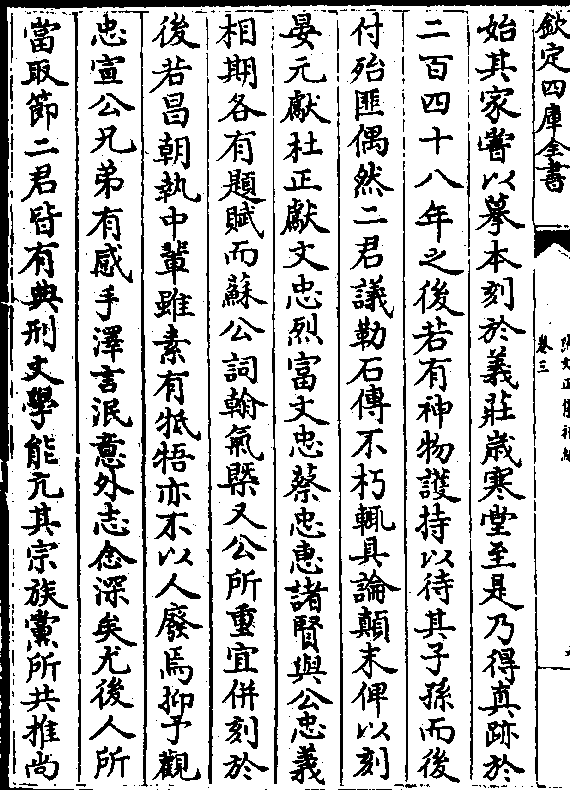 欽定四庫全書
卷三
始其家嘗以摹本刻於義莊歲寒堂至是乃得真跡於
二百四十八年之後若有神物護持以待其子孫而後
付殆匪偶然二君議勒石傳不朽輒具論顛末俾以刻
晏元獻杜正獻文忠烈富文忠蔡忠惠諸賢與公忠義
相期各有題賦而蘇公詞翰氣槩又公所重宜併刻於
後若昌朝執中輩雖素有牴牾亦不以人廢焉抑予觀
忠宣公兄弟有感手澤言泯意外志念深矣尤後人所
當取節二君皆有典刑文學能亢其宗族黨所共推尚